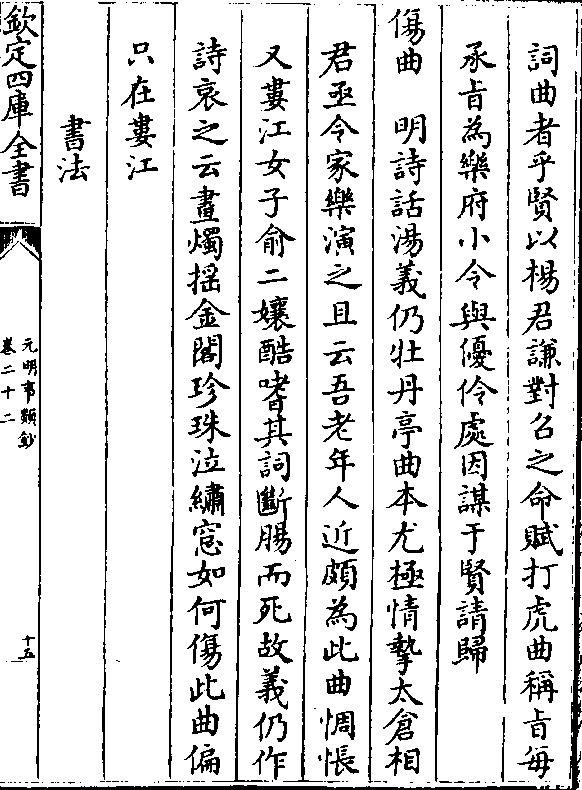 詞曲者乎賢以楊君謙對召之命賦打虎曲稱旨每
承旨為樂府小令與優伶處因謀于賢請歸
傷曲　明詩話湯義仍牡丹亭曲本尤極情摯太倉相
君亟令家樂演之且云吾老年人近頗為此曲惆悵
又婁江女子俞二孃酷嗜其詞斷腸而死故義仍作
詩哀之云畫燭搖金閣珍珠泣繡窓如何傷此曲偏
只在婁江
書法
欽定四庫全書
元明事類鈔
卷二十二
十五